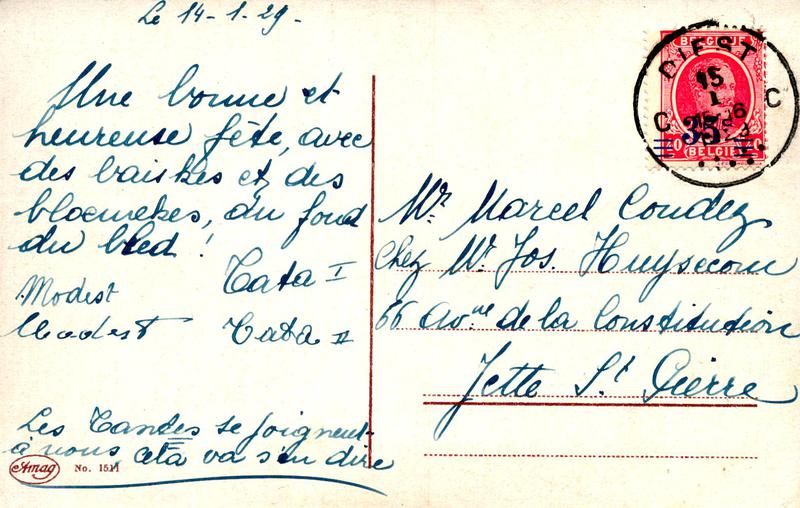 Le 14-1-29-
Une bonne et
heureuse fête, avec
des baiskes et des
bloemekes, du fond
du bled !
Tata I
Modest
Modest Tata II
Les Tantes se joignent-
à nous cela va s'en dire
Amag No. 1511
BELGIQUE
35
BELGIE
DIEST
15
I
C C
Mr. Marcel Coudez
Chez Mr. Jos. Huysecom
66 Avnue de la Constitution
Jette St Pierre